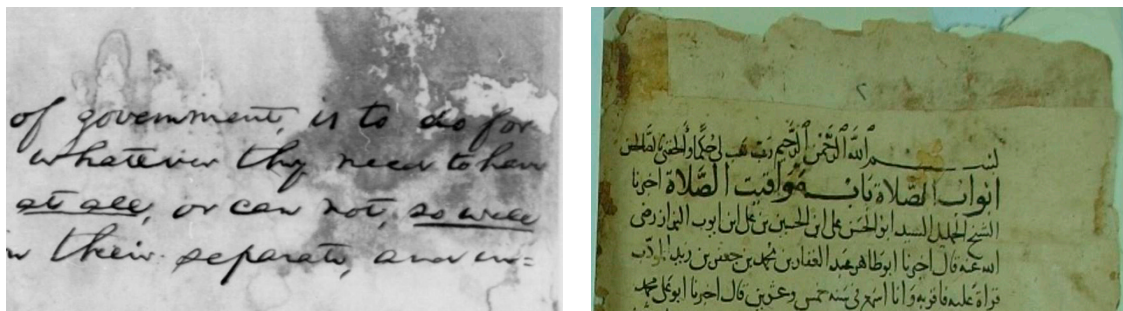 of government, is to do for
whatever they need to have
at all, or can not, so well
their separate, and in=
٢
بسم الله الرحمن الرحيم رب هب لي حكما والحقني بالصالحين
ابواب الصلاة باب مواقيت الصلاة اخبرنا
الشيخ الجليل السيد ابو الحسن علي ابن الحسين بن علي ابن ايوب البزاز رضي
الله عنه قال اخبرنا ابو طاهر عبد الغفار بن محمد بن جعفر بن زيد المودب
قراة عليه فاقر به وانا اسمع في سنه خمس وعشرين قال اخبرنا ابو علي محمد